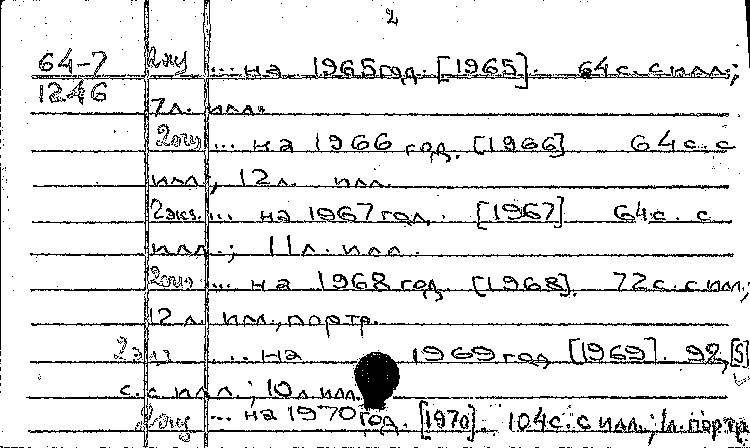 2
64-7 2экз ... на 1965 год. [1965]. 64 с. с илл.;
1246
7 л. илл.
2экз ... на 1966 год. [1966] 64 с. с
илл., 12 л. илл.
2экз. ... на 1967 год. [1967] 64 с. с
илл.; 11 л. илл.
2экз ... на 1968 год. [1968]. 72 с. с илл.;
12 л илл., портр.
2экз ... на 1969 год [1969]. 92, [5]
с. с илл.; 10 л илл.
2экз ... на 1970 год. [1970]. 104 с. с илл.; 1 л. портр